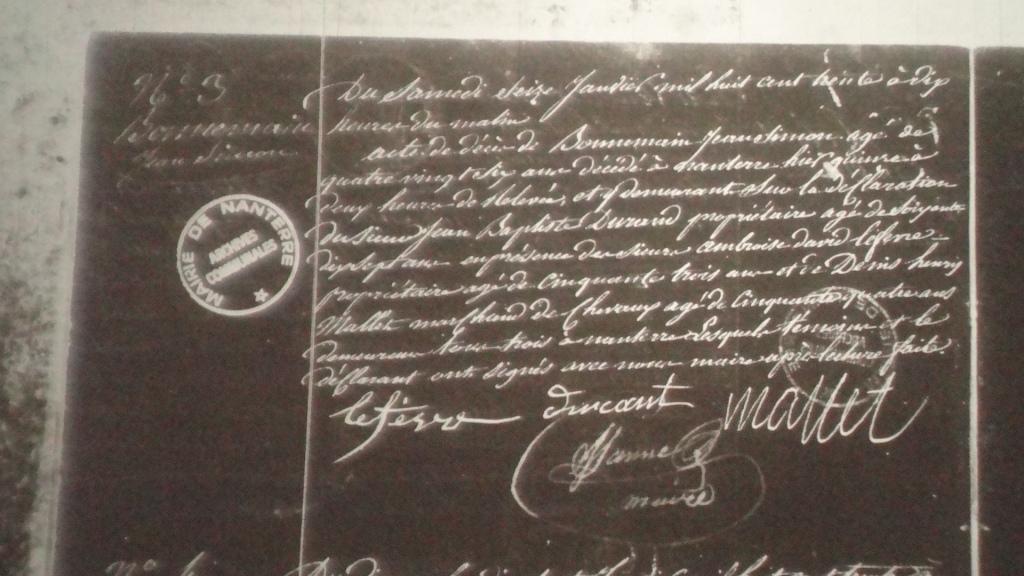 N.° 3
Bonnemain
Jean Simon
MAIRIE DE NANTERRE
ARCHIVES
COMMUNALES
Du Samedi seize Janvier mil huit cent trente à dix
heures du matin
acte de décès de Bonnemain Jean Simon agé de
quatre vingt six ans décédé à Nanterre hier quinze à
deux heures de relevée, et y demeurant Sur la déclaration
du Sieur Jean Baptiste Durand propriétaire agé de soixante
dix sept ans en présence des sieurs ambroise david Lefevre
propriétaire agé de Cinquante trois ans et de Denis henry
Mallet marchand de Chevaux agé de Cinquante quatre ans
demeurans tous trois à nanterre Lesquels témoins et le
déclarant ont signés avec nous maire après lecture faite.
lefevre
Mallet
maire